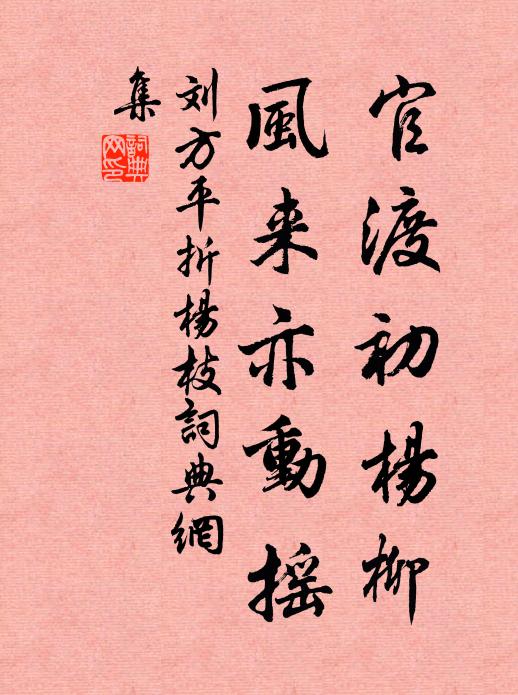 官渡初楊柳
風来亦動摇
刘方平折楊枝詞典網
集
詞典
网印